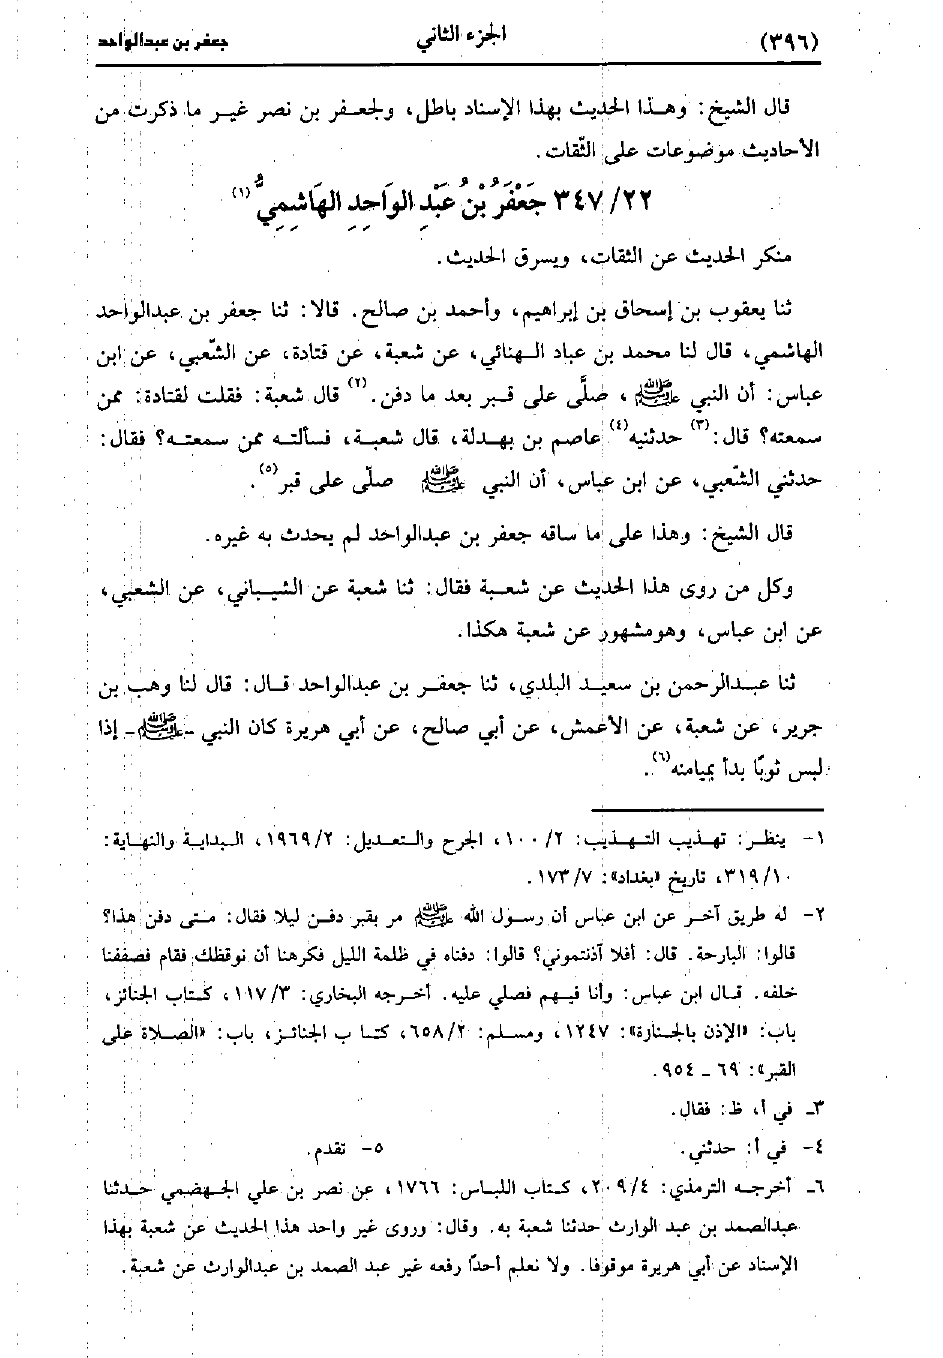 (٣٩٦) الجزء الثاني جعفر بن عبدالواحد
قال الشيخ: وهذا الحديث بهذا الإسناد باطل، ولجعفر بن نصر غير ما ذكرت من
الأحاديث موضوعات على الثّقات.
٣٤٧/٢٢ جَعْفَرُ بْنُ عَبْدِ الوَاحِدِ الهَاشِمِيُّ (١)
منكر الحديث عن الثقات، ويسرق الحديث.
ثنا يعقوب بن إسحاق بن إبراهيم، وأحمد بن صالح. قالا: ثنا جعفر بن عبدالواحد
الهاشمي، قال لنا محمد بن عباد الهنائي، عن شعبة، عن قتادة، عن الشّعبي، عن ابن
عباس: أن النبي ﷺ، صلَّى على قبر بعد ما دفن. (٢) قال شعبة: فقلت لقتادة: ممن
سمعته؟ قال: (٣) حدثنيه (٤) عاصم بن بهدلة، قال شعبة، فسألته ممن سمعته؟ فقال:
حدثني الشّعبي، عن ابن عباس، أن النبي ﷺ صلّى على قبر (٥).
قال الشيخ: وهذا على ما ساقه جعفر بن عبدالواحد لم يحدث به غيره.
وكل من روى هذا الحديث عن شعبة فقال: ثنا شعبة عن الشيباني، عن الشعبي،
عن ابن عباس، وهومشهور عن شعبة هكذا.
ثنا عبدالرحمن بن سعيد البلدي، ثنا جعفر بن عبدالواحد قال: قال لنا وهب بن
جرير، عن شعبة، عن الأعمش، عن أبي صالح، عن أبي هريرة كان النبي -ﷺ- إذا
لبس ثوبًا بدأ بميامنه (٦).
١- ينظر: تهذيب التهذيب: ١٠٠/٢، الجرح والتعديل: ١٩٦٩/٢، البداية والنهاية:
٣١٩/١٠، تاريخ «بغداد»: ١٧٣/٧.
٢- له طريق آخر عن ابن عباس أن رسول الله ﷺ مر بقبر دفن ليلا فقال: متى دفن هذا؟
قالوا: البارحة. قال: أفلا آذنتموني؟ قالوا: دفناه في ظلمة الليل فكرهنا أن نوقظك، فقام فصففنا
خلفه. قال ابن عباس: وأنا فيهم فصلي عليه. أخرجه البخاري: ١١٧/٣، كتاب الجنائز،
باب: «الإذن بالجنازة»: ١٢٤٧، ومسلم: ٦٥٨/٢، كتا ب الجنائز، باب: «الصلاة على
القبر»: ٦٩ - ٩٥٤.
٣- في أ، ظ: فقال.
٤- في أ: حدثني. ٥- تقدم.
٦- أخرجه الترمذي: ٢٠٩/٤، كتاب اللباس: ١٧٦٦، عن نصر بن علي الجهضمي حدثنا
عبدالصمد بن عبد الوارث حدثنا شعبة به. وقال: وروى غير واحد هذا الحديث عن شعبة بهذا
الإسناد عن أبي هريرة موقوفا. ولا نعلم أحدًا رفعه غير عبد الصمد بن عبدالوارث عن شعبة.